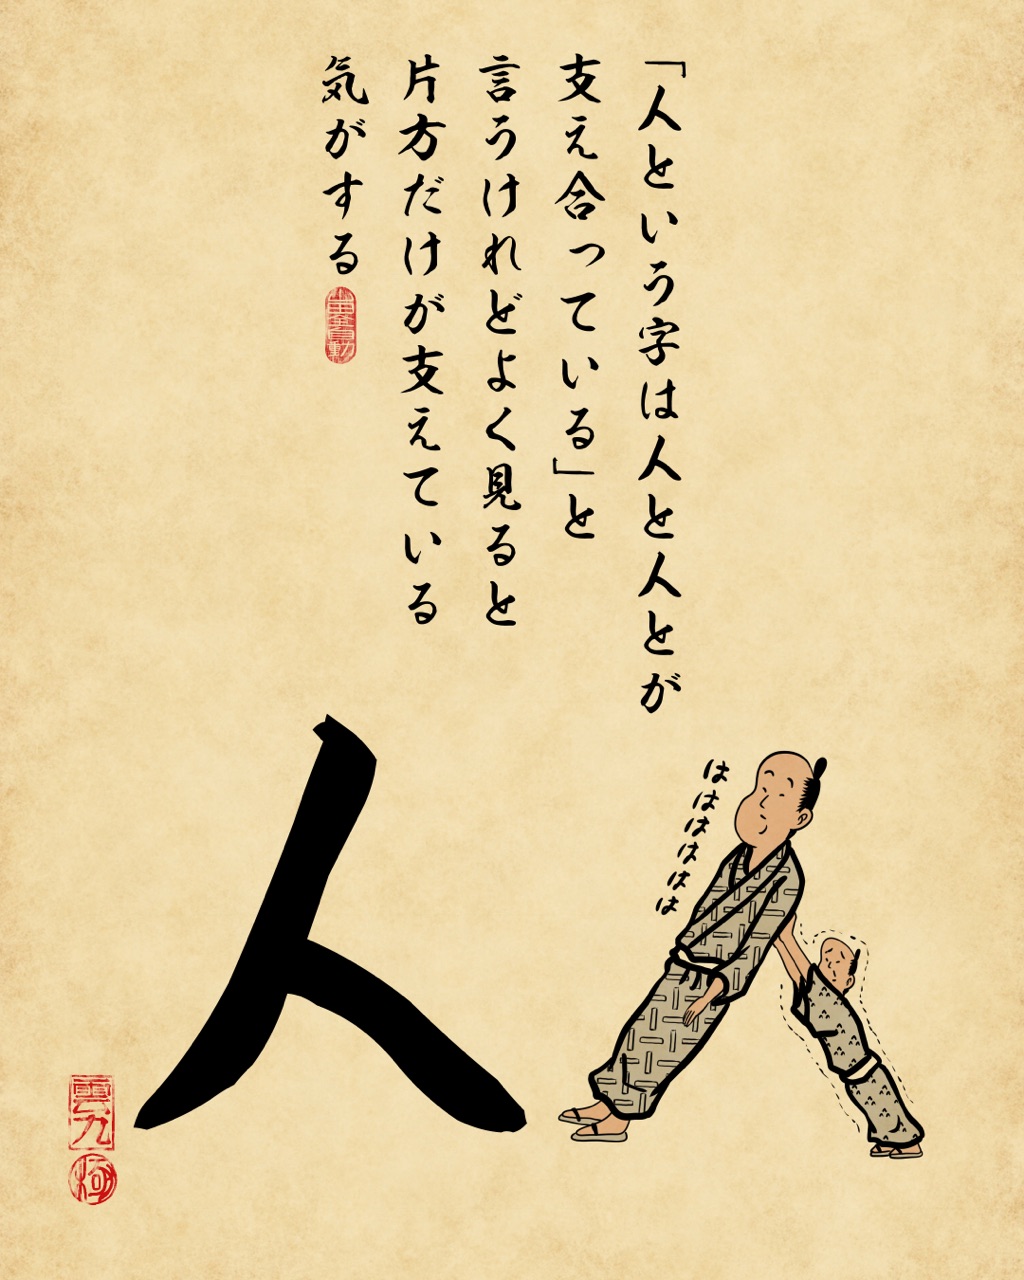 「人という字は人と人とが
支え合っている」と
言うけれどよく見ると
片方だけが支えている
気がする
人
はははははは